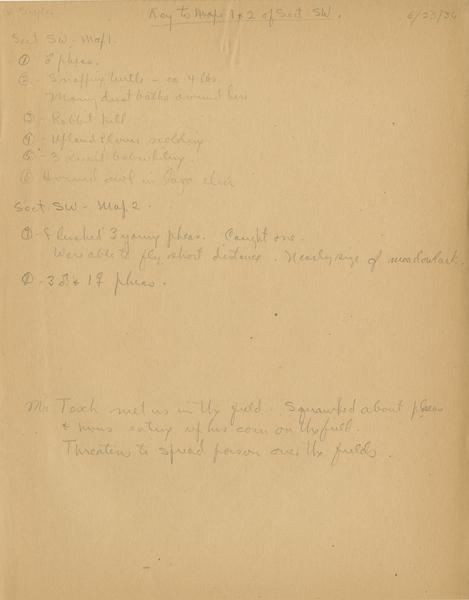 Key to Maps 1 & 2 of Sect. SW.
6/23/36
Sect SW - Map 1.
① ♂ pheas.
② - Snapping turtle - ca 4 lbs.
Many dust baths around here
③ - Rabbit
④ - Upland Plover scolding
⑤ - 3 bobwhiting.
⑥ Horned owl in
Sect. SW - Map 2.
① - Flushed 3 young pheas. Caught one.
Were able to fly short distance. Nearly size of meadowlark.
② - 3 ♂s + 1 ♀ pheas.
Mr. met us in the field. Squawked about pheas
& Huns eating up his corn on the field.
Threatens to spread poison over the fields.